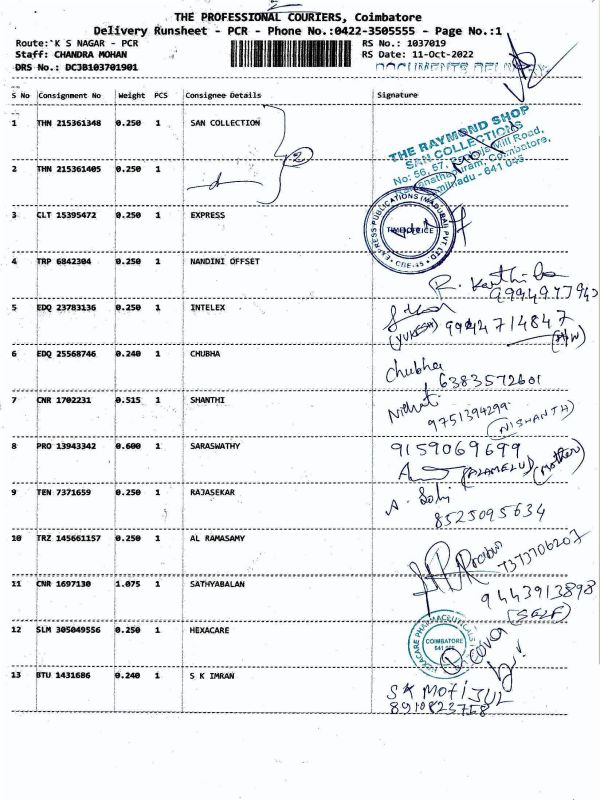 2
THE PROFESSIONAL COURIERS, Coimbatore
Delivery Runsheet - PCR - Phone No.:0422-3505555 - Page No.:1
Route: K S NAGAR - PCR
RS No.: 1037019
Staff: CHANDRA MOHAN
RS Date: 11-Oct-2022
DRS No.: DCJB103701901
S No Consignment No Weight PCS Consignee Details Signature
1 THN 215361348 0.250 1 SAN COLLECTION
2
THE RAYMOND SHOP
SAN COLLECTIONS
No: 56, 57, Mill Road,
Coimbatore,
Tamilnadu - 641 045
2 THN 215361405 0.250 1
3 CLT 15395472 0.250 1 EXPRESS
EXPRESS PUBLICATIONS (MADURAI) PVT LTD
TIME OFFICE
CBE-45
4 TRP 6842304 0.250 1 NANDINI OFFSET
R. Karthika
5 EDQ 23783136 0.250 1 INTELEX
(YUKESH) 9944714847
(H/W)
6 EDQ 25568746 0.240 1 CHUBHA
Chubha
6383572601
7 CNR 1702231 0.515 1 SHANTHI
9751394299
(NISHANTH)
8 PRO 13943342 0.600 1 SARASWATHY
9159069699
(ALAMELU) (Mother)
9 TEN 7371659 0.250 1 RAJASEKAR
8525095634
10 TRZ 145661157 0.250 1 AL RAMASAMY
7373706207
11 CNR 1697130 1.075 1 SATHYABALAN
9443913898
(SELF)
12 SLM 305049556 0.250 1 HEXACARE
HEXACARE PHARMACEUTICALS
COIMBATORE
13 BTU 1431686 0.240 1 S K IMRAN
SK MOFIJUL
8910823758